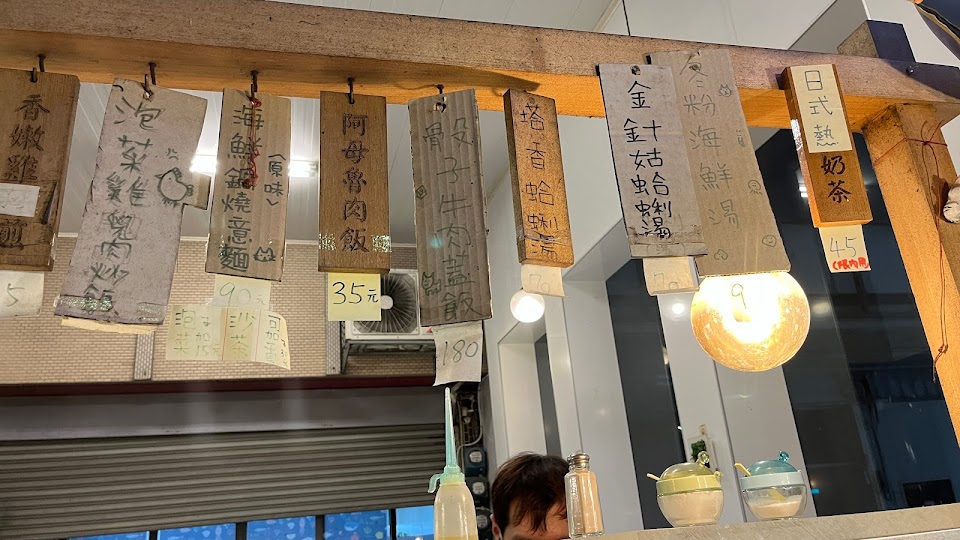 香嫩雞
煎
5
泡菜雞腿肉炒飯
海鮮鍋燒意麵
(原味)
90元
泡菜
沙茶
阿母魯肉飯
35元
骰子牛肉蓋飯
180
塔香蛤蜊湯
70
金針菇蛤蜊湯
70
冬粉海鮮湯
9
日式熱
奶茶
45
(限內用)